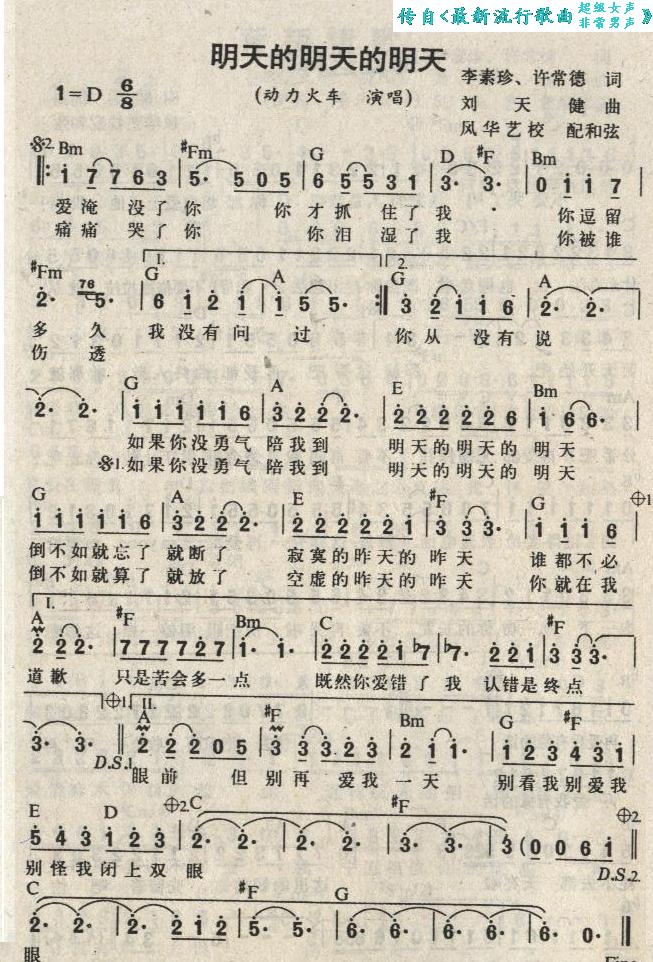 传自《最新流行歌曲 超级女声 非常男声》
明天的明天的明天
1=D 6/8
(动力火车 演唱)
李素珍、许常德 词
刘天健 曲
风华艺校 配和弦
𝄋2. Bm #Fm G D #F Bm
‖: i 7 7 6 3 | 5· 5 0 5 | 6 5 5 3 1 | 3· 3· | 0 i i 7 |
爱淹 没了你 你才抓 住了我 你逗留
痛痛 哭了你 你泪 湿了我 你被谁
#Fm 1. G A 2. G A
2· 76 5· | 6 i 2 i | i 5 5· :‖ 3 2 i i 6 | 2· 2· |
多 久 我没有问 过 你从 没有 说
伤 透
G A E Bm
2· 2· | i i i i i 6 | 3 2 2 2· | 2 2 2 2 2 6 | i 6 6· |
如果你没勇气 陪我到 明天的明天的 明天
𝄋1.如果你没勇气 陪我到 明天的明天的 明天
G A E #F G ⊕1
i i i i i 6 | 3 2 2 2· | 2 2 2 2 2 i | 3 3 3· | i i i 6 |
倒不如就忘了 就断了 寂寞的昨天的 昨天 谁都不必
倒不如就算了 就放了 空虚的昨天的 昨天 你就在我
I. A #F Bm C #F
2 2 2· | 7 7 7 7 2 7 | i· i· | 2 2 2 2 i b7 | b7· 2 2 i | 3 3 3· |
道歉 只是苦会多一点 既然你爱错了 我 认错是终点
⊕1. II. A #F Bm G #F
3· 3· ‖ 2 2 2 0 5 | 3 3 3 2 3 | 2 i i· | i 2 3 4 3 i |
D.S.1.
眼前 但 别再 爱我 一天 别看我别爱我
E D ⊕2. C #F ⊕2.
5 4 3 i 2 3 | 2· 2· | 2· 2· | 3· 3· | 3 (0 0 6 i ‖
别怪我闭上双 眼
D.S.2.
C #F G
2· 2· | 2· 2 i 2 | 5· 5· | 6· 6· | 6· 6· | 6· 0· ‖
眼
Fine